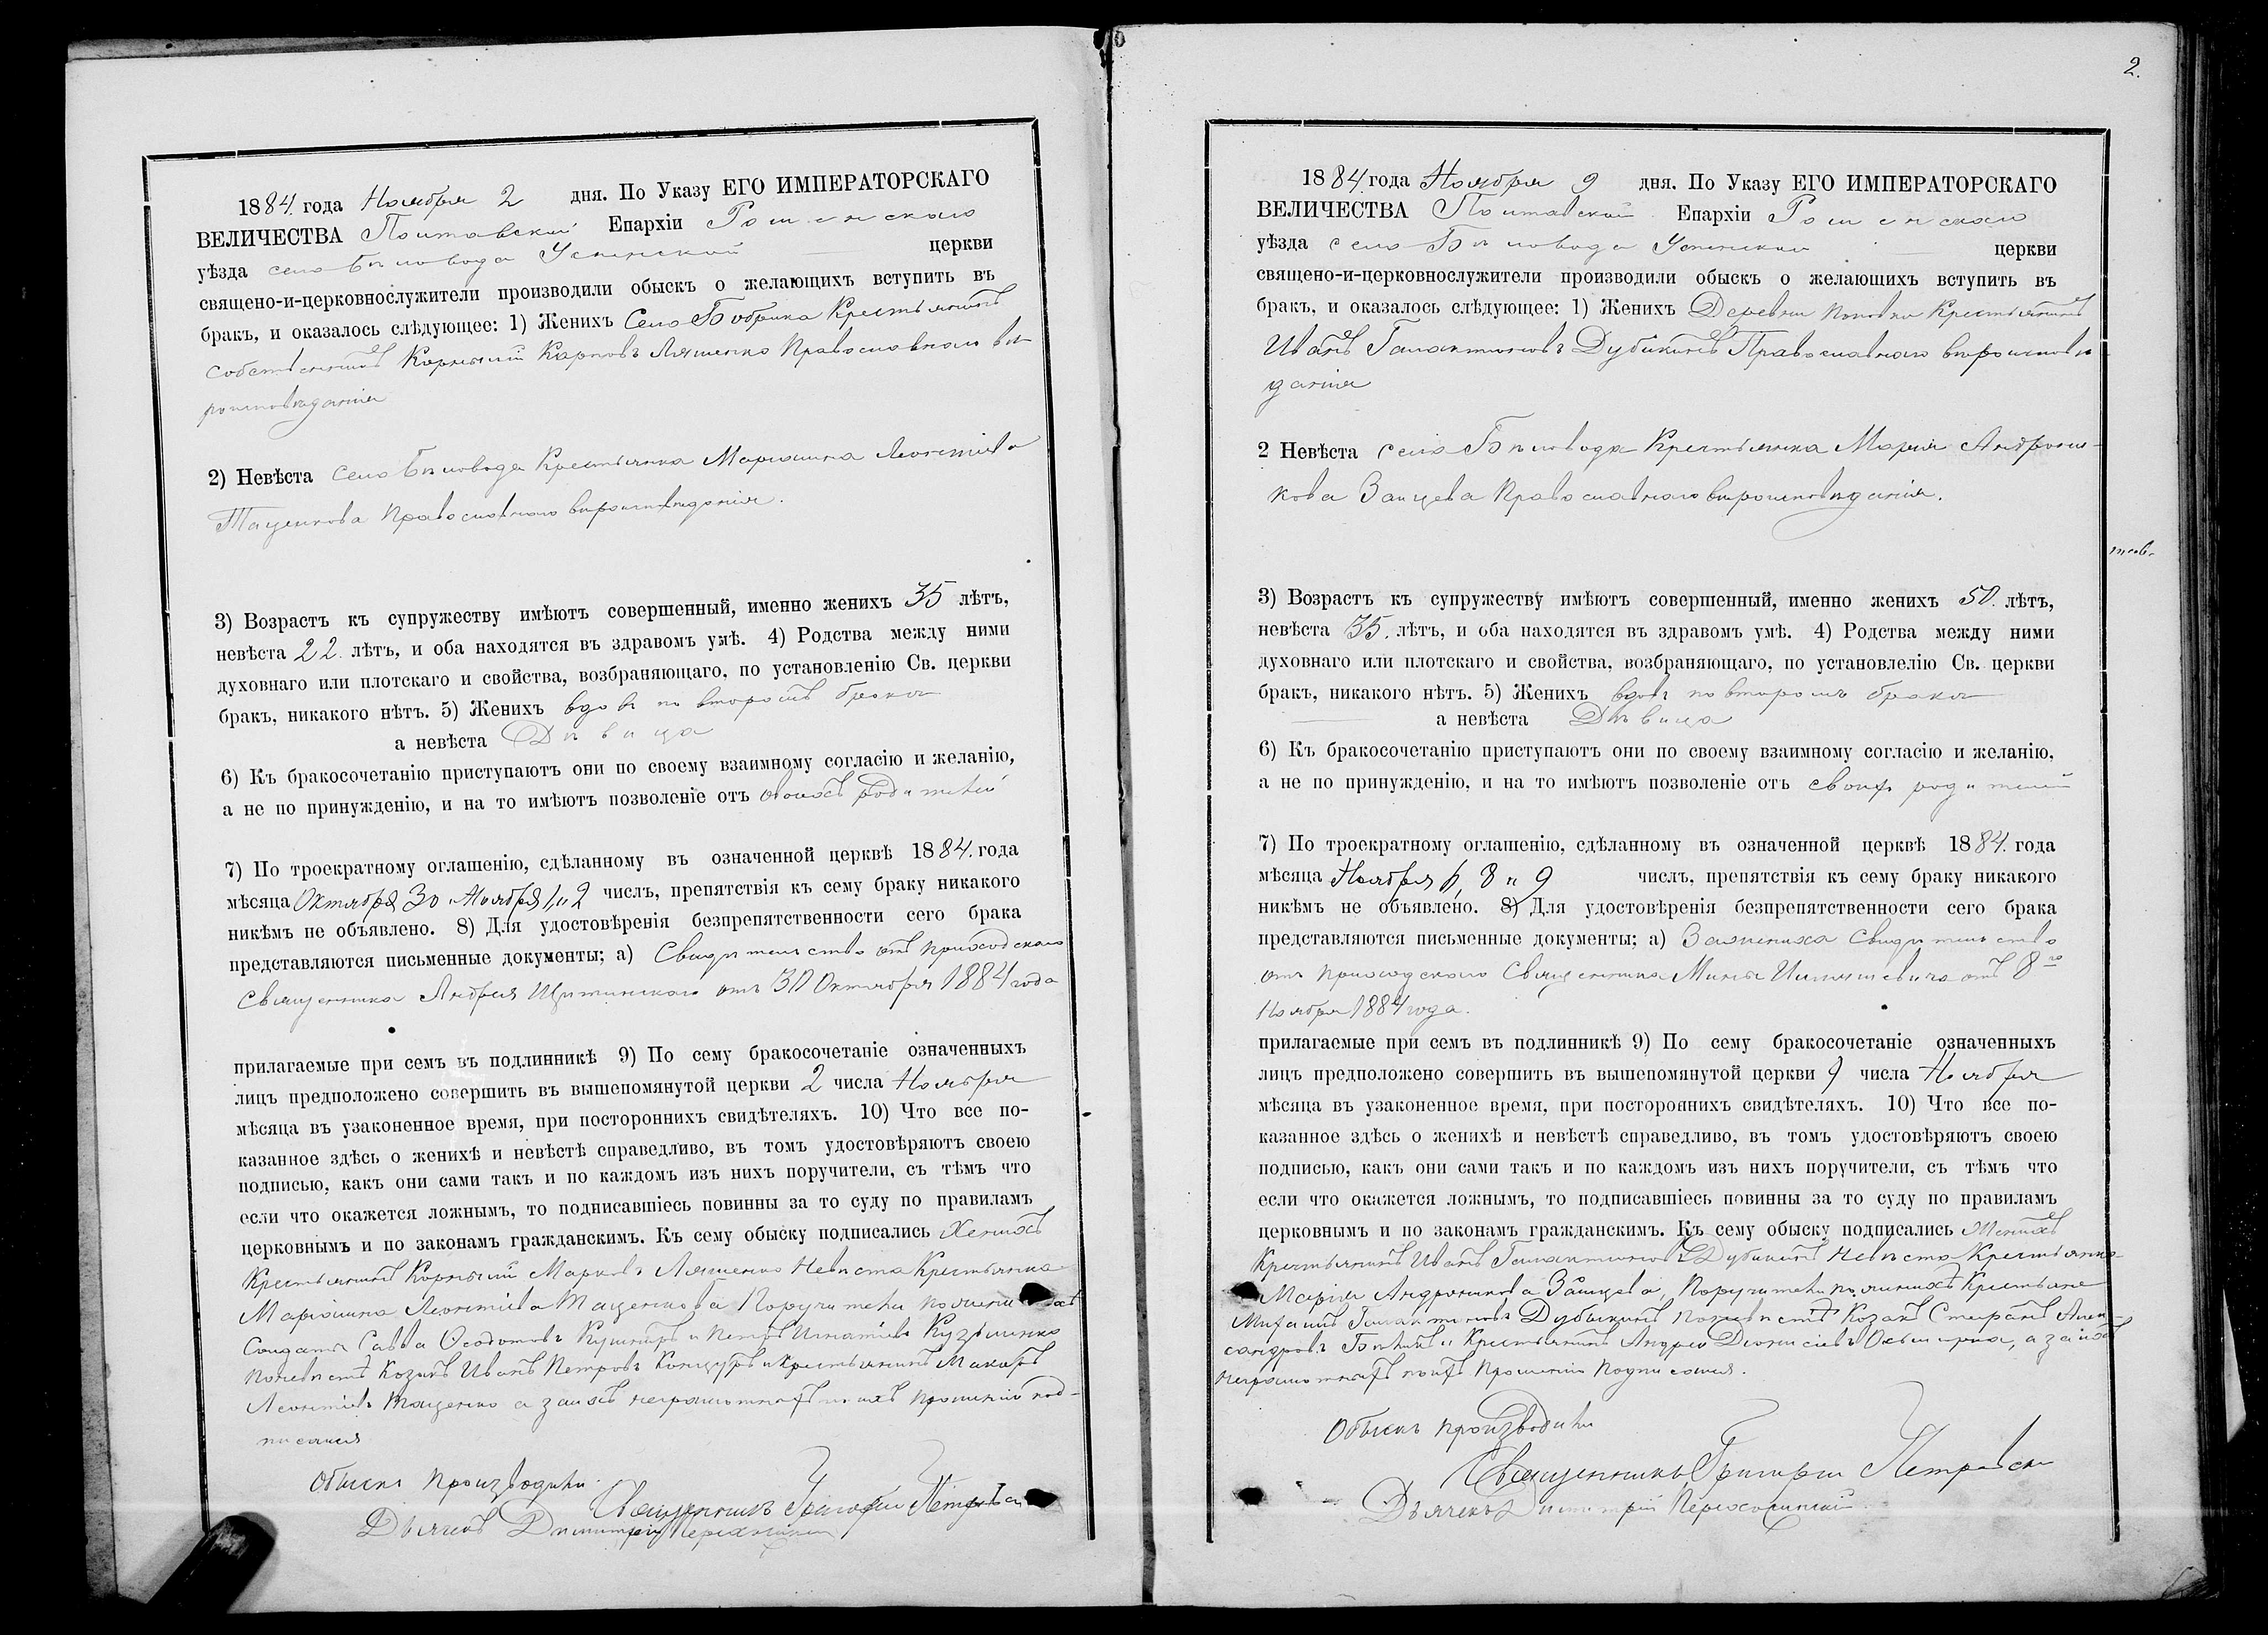 1884 года Ноября 2 дня. По Указу ЕГО ИМПЕРАТОРСКАГО
ВЕЛИЧЕСТВА Полтавской Епархіи Роменскаго
уѣзда село Бѣловода Успенской церкви
священо-и-церковнослужители производили обыскъ о желающихъ вступить въ
бракъ, и оказалось слѣдующее: 1) Женихъ Села Бобрика Крестьянинъ
собственникъ Корнилій Карповъ Ляшенко Православнаго вѣ-
роисповѣданія
2) Невѣста Села Бѣловода Крестьянка Маріанна Леонтіева
Таценкова Православнаго вѣроисповѣданія.
3) Возрастъ къ супружеству имѣютъ совершенный, именно женихъ 35 лѣтъ,
невѣста 22 лѣтъ, и оба находятся въ здравомъ умѣ. 4) Родства между ними
духовнаго или плотскаго и свойства, возбраняющаго, по установленію Св. церкви
бракъ, никакого нѣтъ. 5) Женихъ вдовъ по второмъ бракѣ
а невѣста Дѣвица
6) Къ бракосочетанію приступаютъ они по своему взаимному согласію и желанію,
а не по принужденію, и на то имѣютъ позволеніе отъ своихъ родителей
7) По троекратному оглашенію, сдѣланному въ означенной церквѣ 1884 года
мѣсяца Октября 30 Ноября 1 и 2 числъ, препятствія къ сему браку никакого
никѣмъ не объявлено. 8) Для удостовѣренія безпрепятственности сего брака
представляются письменные документы; а) Свидѣтельство отъ приходскаго
Священника Андрея отъ 30 Октября 1884 года
прилагаемые при семъ въ подлинникѣ 9) По сему бракосочетаніе означенныхъ
лицъ предположено совершить въ вышепомянутой церкви 2 числа Ноября
мѣсяца въ узаконенное время, при постороннихъ свидѣтеляхъ. 10) Что все по-
казанное здѣсь о женихѣ и невѣстѣ справедливо, въ томъ удостовѣряютъ своею
подписью, какъ они сами такъ и по каждомъ изъ нихъ поручители, съ тѣмъ что
если что окажется ложнымъ, то подписавшіесь повинны за то суду по правиламъ
церковнымъ и по законамъ гражданскимъ. Къ сему обыску подписались Женихъ
Крестьянинъ Корнилій Марковъ Ляшенко Невѣста Крестьянка
Маріанна Леонтіева Таценкова Поручители по женихѣ
Солдаты Савва Ѳеодотовъ Кушниръ и Петръ Игнатіевъ Кузьменко
по невѣстѣ Козакъ Иванъ Петровъ Концуръ и Крестьянинъ Макаръ
Леонтіевъ Таценко а за ихъ неграмотныхъ по ихъ прошенію под-
писался
Обыскъ производили
Священникъ Григорій Петровскій
Дьячекъ Димитрій
2.
1884 года Ноября 9 дня. По Указу ЕГО ИМПЕРАТОРСКАГО
ВЕЛИЧЕСТВА Полтавской Епархіи Роменскаго
уѣзда село Бѣловода Успенской церкви
священо-и-церковнослужители производили обыскъ о желающихъ вступить въ
бракъ, и оказалось слѣдующее: 1) Женихъ Деревни Поповки Крестьянинъ
Иванъ Галактіоновъ Дубыкинъ Православнаго вѣроисповѣ-
данія
2 Невѣста Села Бѣловода Крестьянка Марія Андрони-
кова Заицева Православнаго вѣроисповѣданія.
3) Возрастъ къ супружеству имѣютъ совершенный, именно женихъ 50 лѣтъ,
невѣста 35 лѣтъ, и оба находятся въ здравомъ умѣ. 4) Родства между ними
духовнаго или плотскаго и свойства, возбраняющаго, по установлелію Св. церкви
бракъ, никакого нѣтъ. 5) Женихъ вдовъ по второмъ бракѣ
а невѣста Дѣвица
6) Къ бракосочетанію приступаютъ они по своему взаимному согласію и желанію,
а не по принужденію, и на то имѣютъ позволеніе отъ своихъ родителей
7) По троекратному оглашенію, сдѣланному въ означенной церквѣ 1884 года
мѣсяца Ноября 6, 8 и 9 числъ, препятствія къ сему браку никакого
никѣмъ не объявлено. 8) Для удостовѣренія безпрепятственности сего брака
представляются письменные документы; а) За жениха Свидѣтельство
отъ приходскаго Священника отъ 8го
Ноября 1884 года.
прилагаемые при семъ въ подлинникѣ 9) По сему бракосочетаніе означенныхъ
лицъ предположено совершить въ вышепомянутой церкви 9 числа Ноября
мѣсяца въ узаконенное время, при постороннихъ свидѣтеляхъ. 10) Что все по-
казанное здѣсь о женихѣ и невѣстѣ справедливо, въ томъ удостовѣряютъ своею
подписью, какъ они сами такъ и по каждомъ изъ нихъ поручители, съ тѣмъ что
если что окажется ложнымъ, то подписавшіесь повинны за то суду по правиламъ
церковнымъ и по законамъ гражданскимъ. Къ сему обыску подписались Женихъ
Крестьянинъ Иванъ Галактіоновъ Дубыкинъ Невѣста Крестьянка
Марія Андроникова Заицева, Поручители по женихѣ Крестьяне
Михаилъ Галактіоновъ Дубыкинъ по невѣстѣ Козакъ Стефанъ Алек-
сандровъ и Крестьянинъ Андрей Діонисіевъ а за ихъ
неграмотныхъ по ихъ прошенію подписался.
Обыскъ производили
Священникъ Григорій Петровскій
Дьячекъ Димитрій